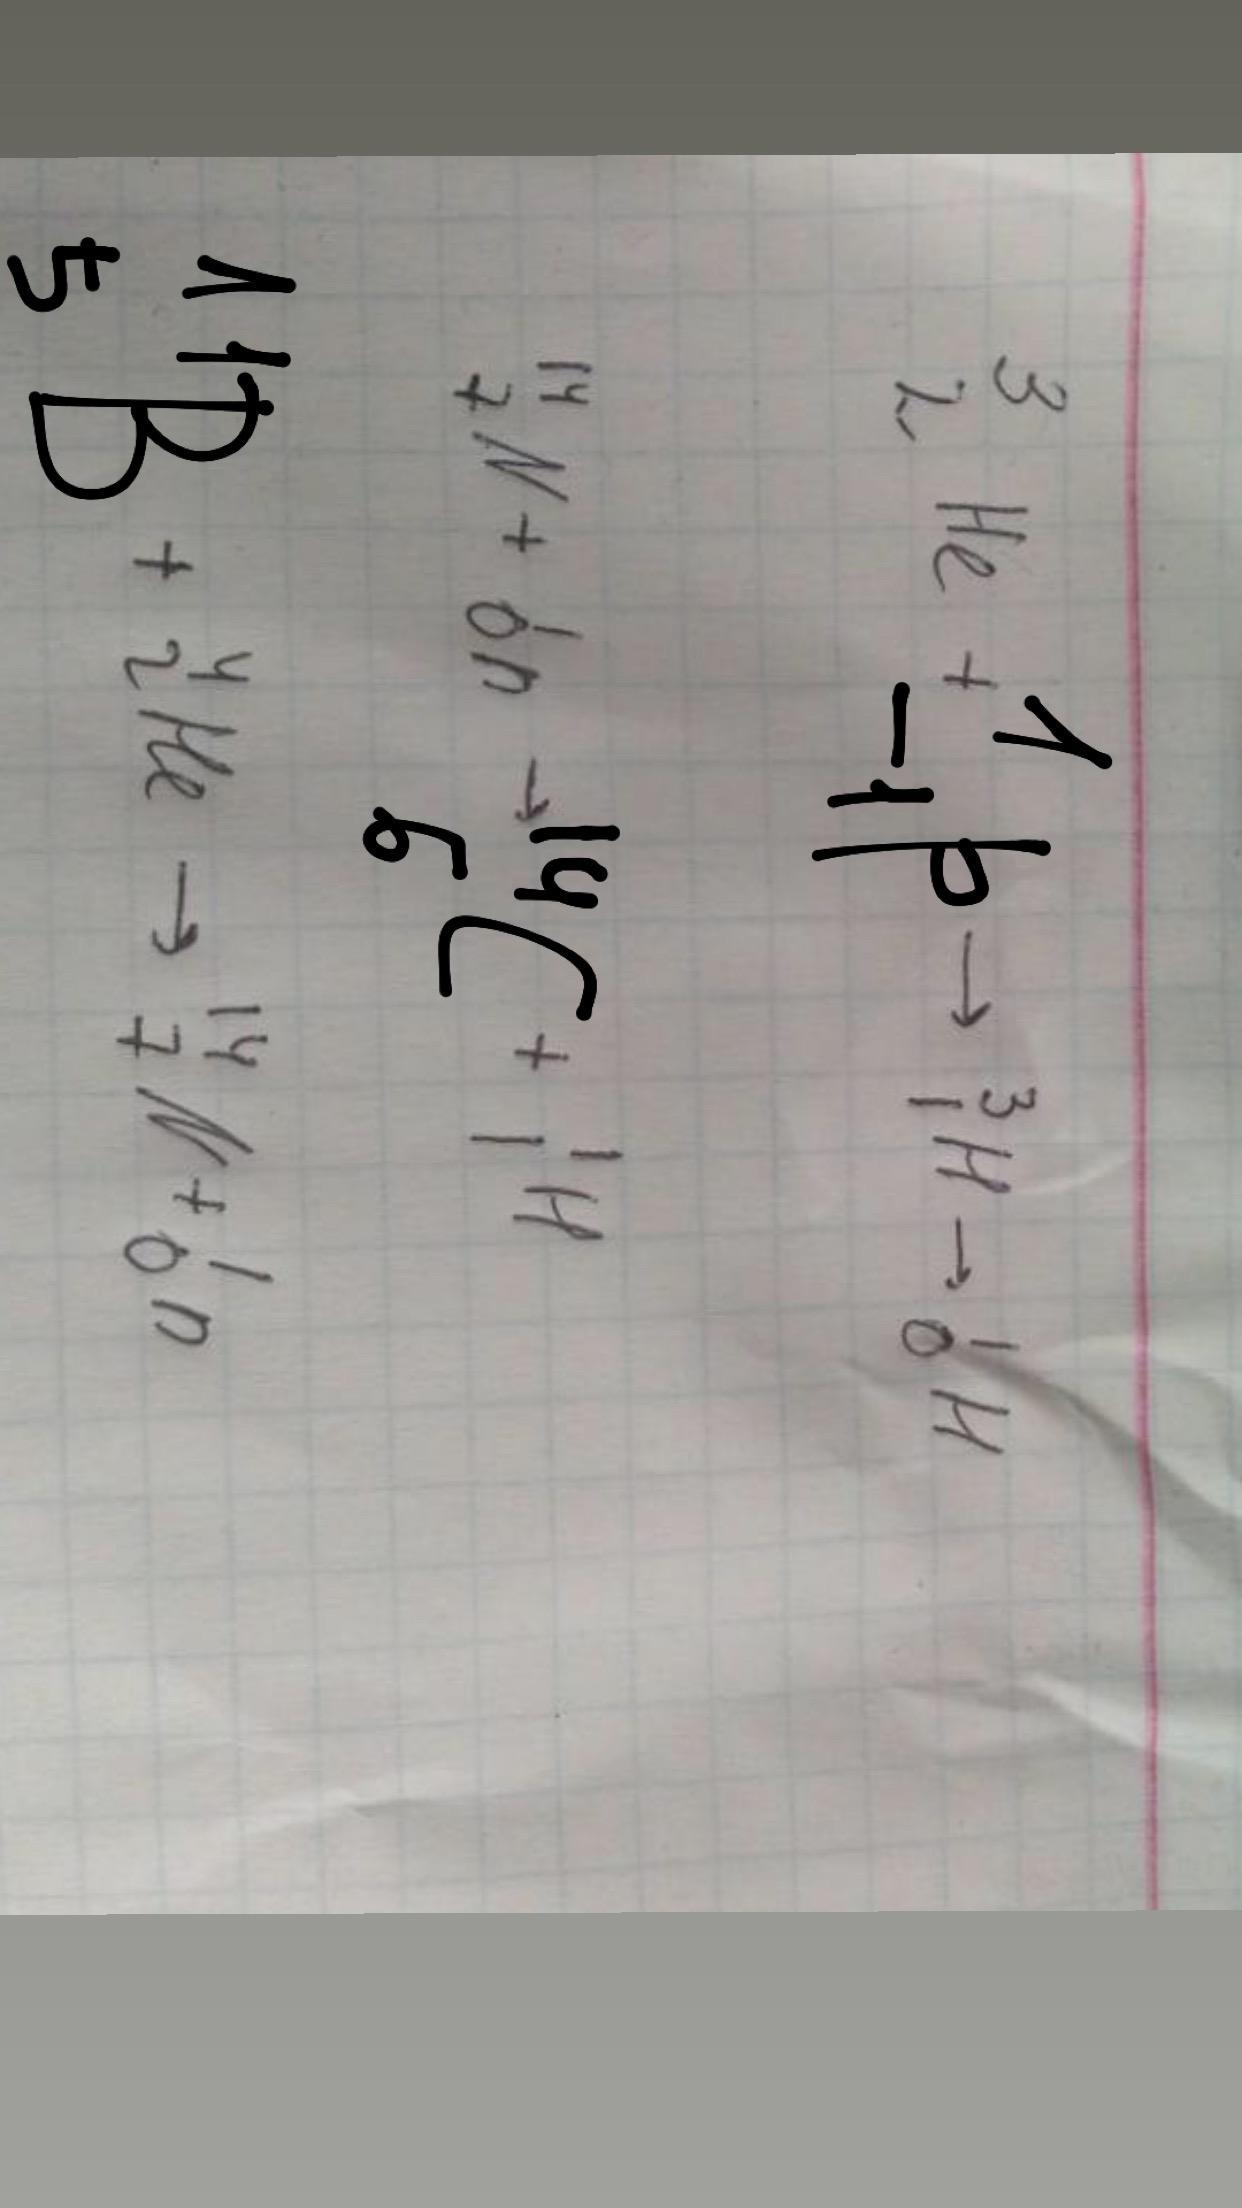 ³₂He + ¹₋₁p → ³₁H → ¹₀H
¹⁴₇N + ¹₀n → ¹⁴₆C + ¹₁H
¹¹₅B + ⁴₂He → ¹⁴₇N + ¹₀n